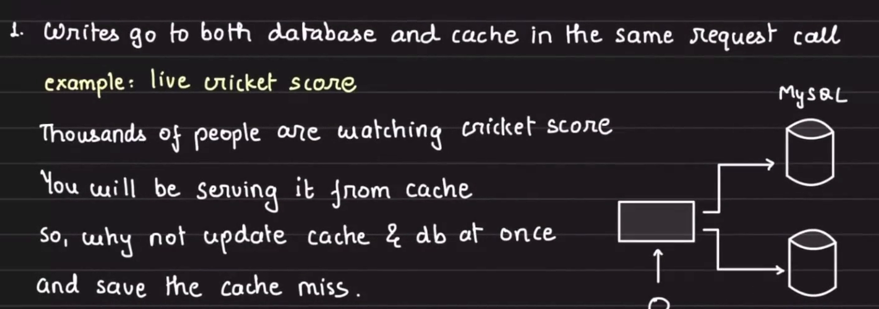 1. Writes go to both database and cache in the same request call
example: live cricket score
MySQL
Thousands of people are watching cricket score
You will be serving it from cache
So, why not update cache & db at once
and save the cache miss.